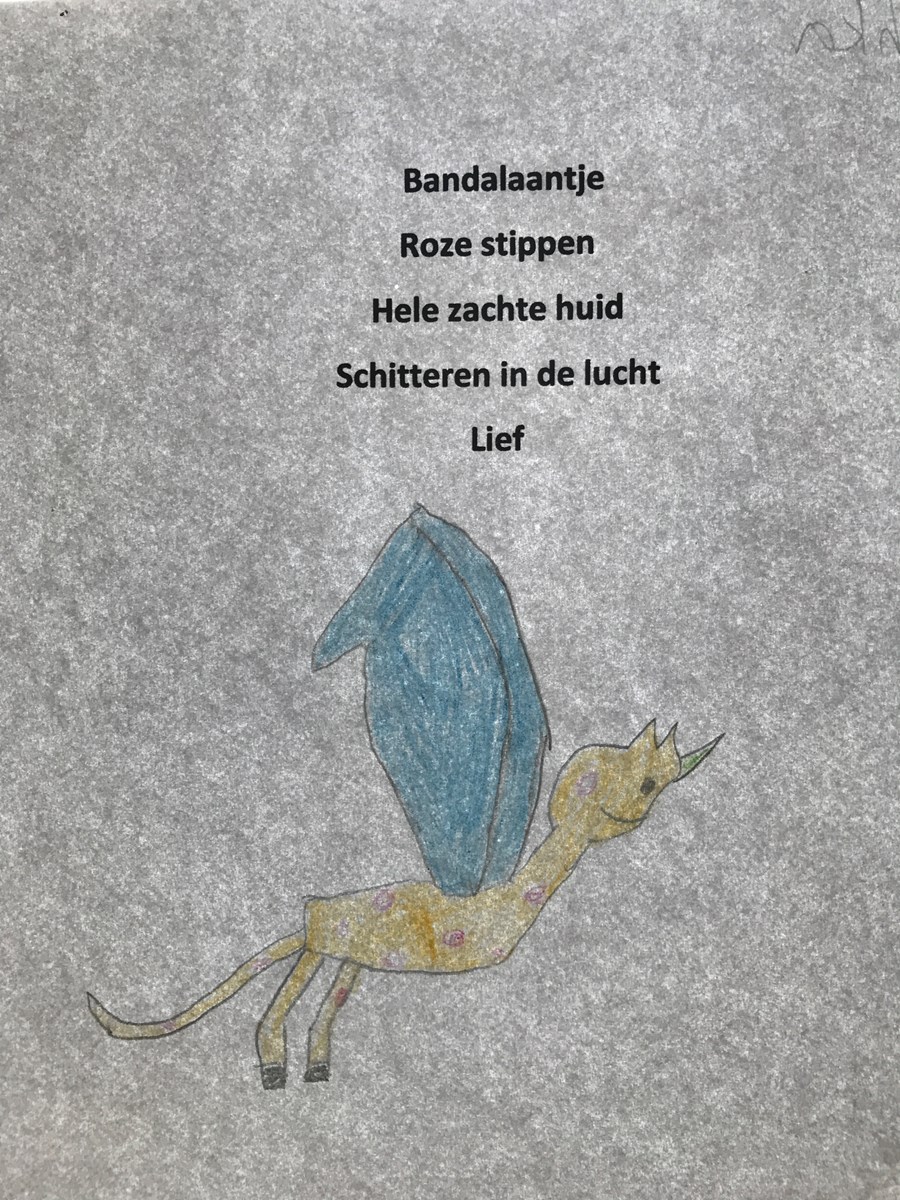 Bandalaantje
Roze stippen
Hele zachte huid
Schitteren in de lucht
Lief